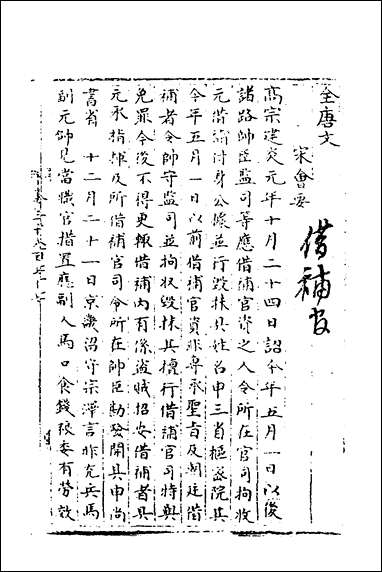 全唐文
宋會要
借補官
高宗建炎元年十月二十四日詔今年五月一日以後
諸路帥臣監司等應借補官資之人令所在官司拘收
元借補付身公據並行毀抹具姓名申三省樞密院其
今年五月一日以前借補官資非專承聖旨及朝廷借
補者令帥守監司並拘收毀抹其擅行借補官司特與
免罪今後不得更輒借補內有係盜賊招安借補者具
元承指揮及所借補官司令所在帥臣勘發開具申尚
書省 十二月二十一日京畿沿守宗澤言昨充兵馬
副元帥見當職官措置應副人馬口食錢糧委有勞效